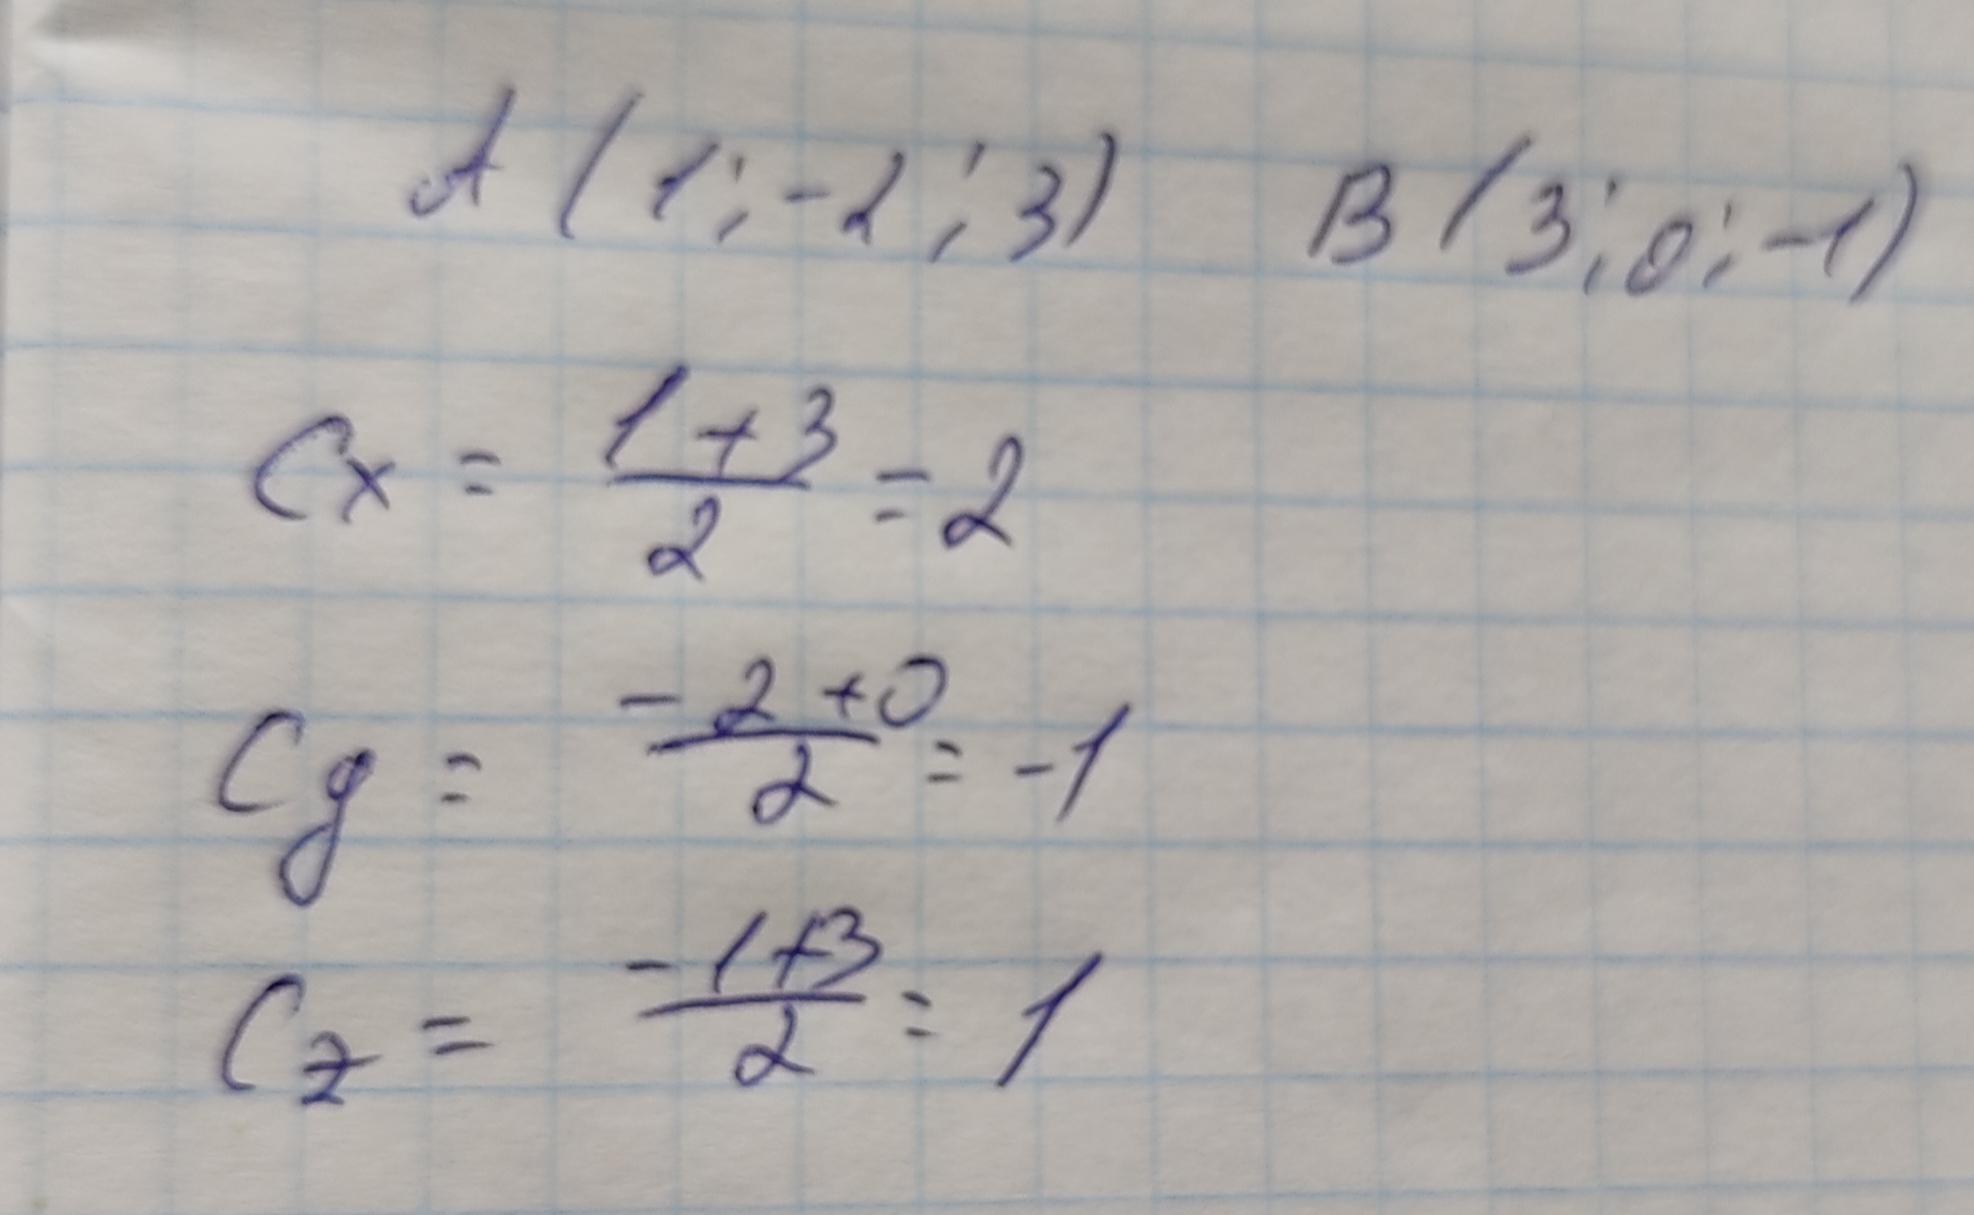 A (1; -2; 3) B (3; 0; -1)
Cx = \frac{1+3}{2} = 2
Cy = \frac{-2+0}{2} = -1
Cz = \frac{-1+3}{2} = 1